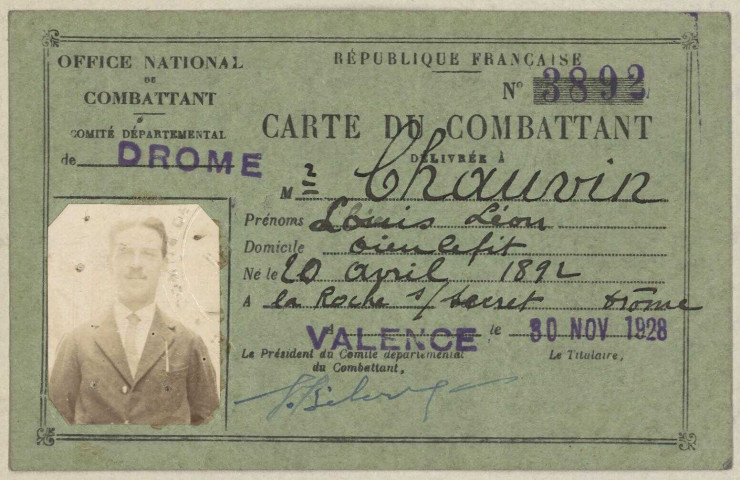 OFFICE NATIONAL
DU
COMBATTANT
COMITÉ DÉPARTEMENTAL
de DROME
RÉPUBLIQUE FRANÇAISE
N° 3892
CARTE DU COMBATTANT
DÉLIVRÉE À
M r Chauvin
Prénoms Louis Léon
Domicile Dieulefit
Né le 20 avril 1892
A la Roche s/ Secret Drôme
A VALENCE le 30 NOV 1928
Le Président du Comité départemental
du Combattant,
Le Titulaire,